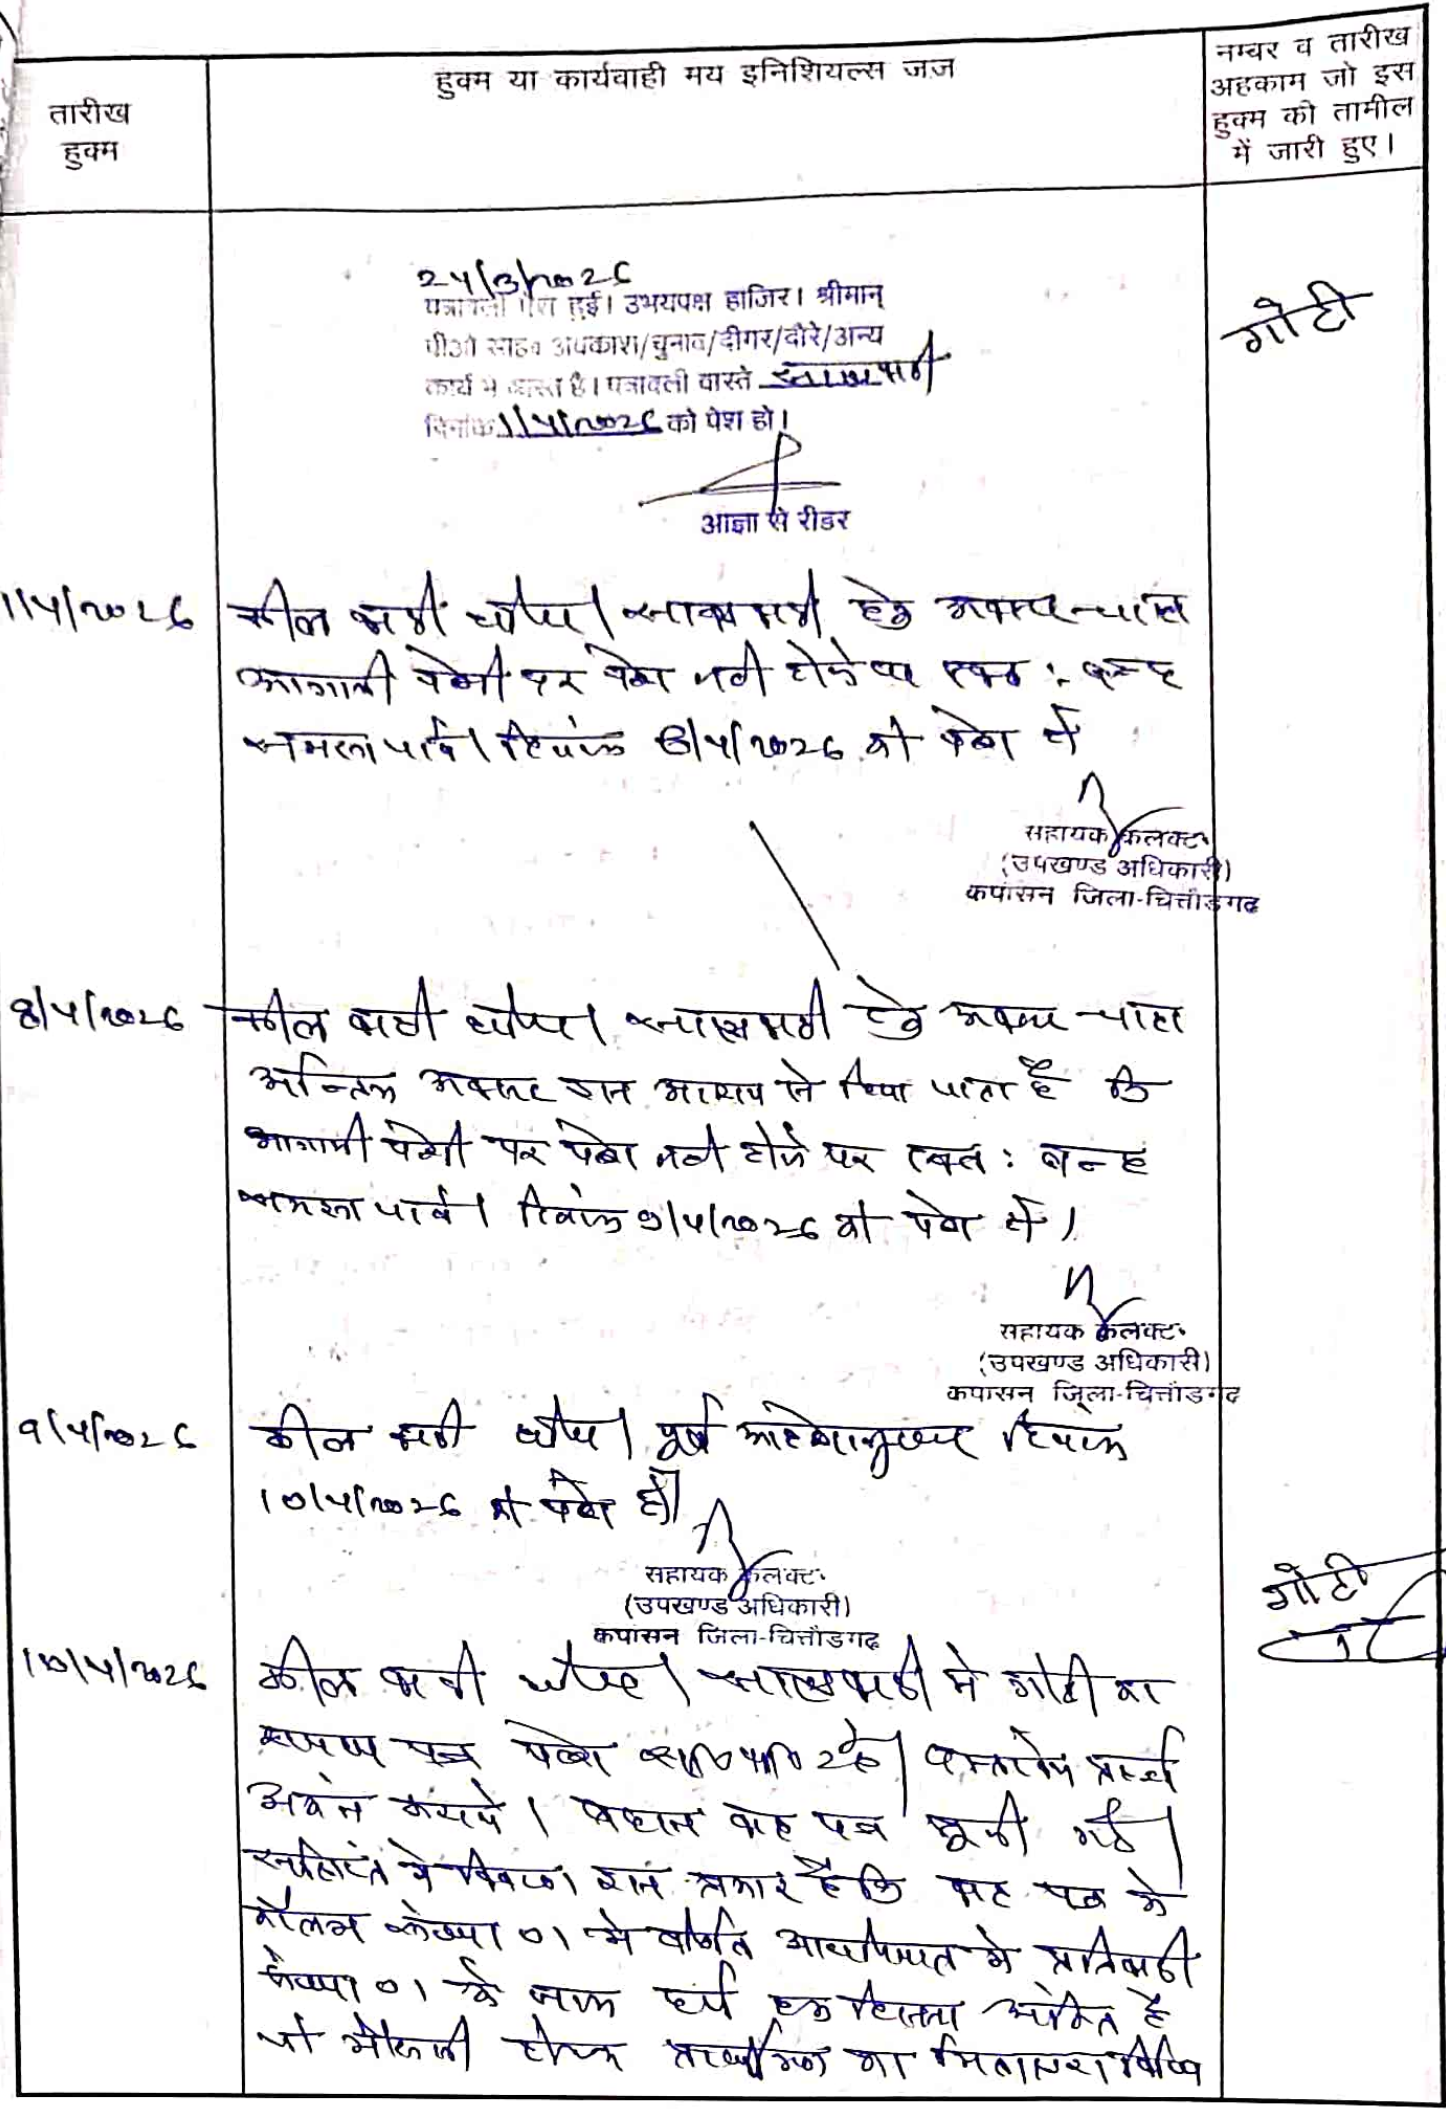 तारीख
हुक्म
हुक्म या कार्यवाही मय इनिशियल्स जज
नम्बर व तारीख
अहकाम जो इस
हुक्म की तामील
में जारी हुए।
24/3/2026
पत्रावली पेश हुई। उभयपक्ष हाजिर। श्रीमान्
पीओ साहब अवकाश/चुनाव/दीगर/दौरे/अन्य
कार्य में व्यस्त है। पत्रावली वास्ते
दिनांक 1/4/2026 को पेश हो।
आज्ञा से रीडर
गोटी
1/4/2026 वकील वादी उप0। साक्ष्य वादी हेतु अवसर चाहा
आगामी पेशी पर पेश नही होने पर स्वतः बन्द
समझा जावे। दिनांक 8/4/2026 को पेश हो
सहायक कलक्टर
(उपखण्ड अधिकारी)
कपासन जिला-चित्तौडगढ
8/4/2026 वकील वादी उप0। साक्ष्य वादी हेतु अवसर चाहा
अन्तिम अवसर इस आशय से दिया जाता है कि
आगामी पेशी पर पेश नही होने पर स्वतः बन्द
समझा जावे। दिनांक 9/4/2026 को पेश हो।
सहायक कलक्टर
(उपखण्ड अधिकारी)
कपासन जिला-चित्तौडगढ
9/4/2026 वकील वादी उप0। पूर्व आदेशानुसार दिनांक
10/4/2026 को पेश हो।
सहायक कलक्टर
(उपखण्ड अधिकारी)
कपासन जिला-चित्तौडगढ
गोटी
10/4/2026 वकील वादी उप0। साक्ष्य वादी मे गोटी का
शपथ पत्र पेश
। बहस वाद पत्र सुनी गई।
इस प्रकार है कि वाद पत्र के
कॉलम संख्या 01 मे वर्णित आराजीयात मे प्रतिवादी
संख्या 01 के नाम दर्ज हक हिस्सा अंकित है
जो मौरूसी होकर